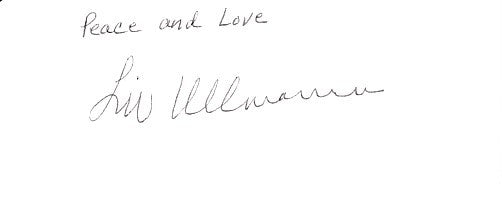 Peace and Love
Liv Ullmann